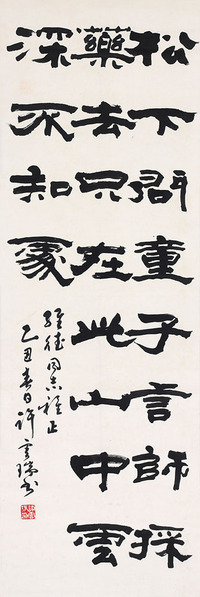 松下問童子言師採
藥去只在此山中雲
深不知處
同志雅正
乙丑春日許雲瑞书